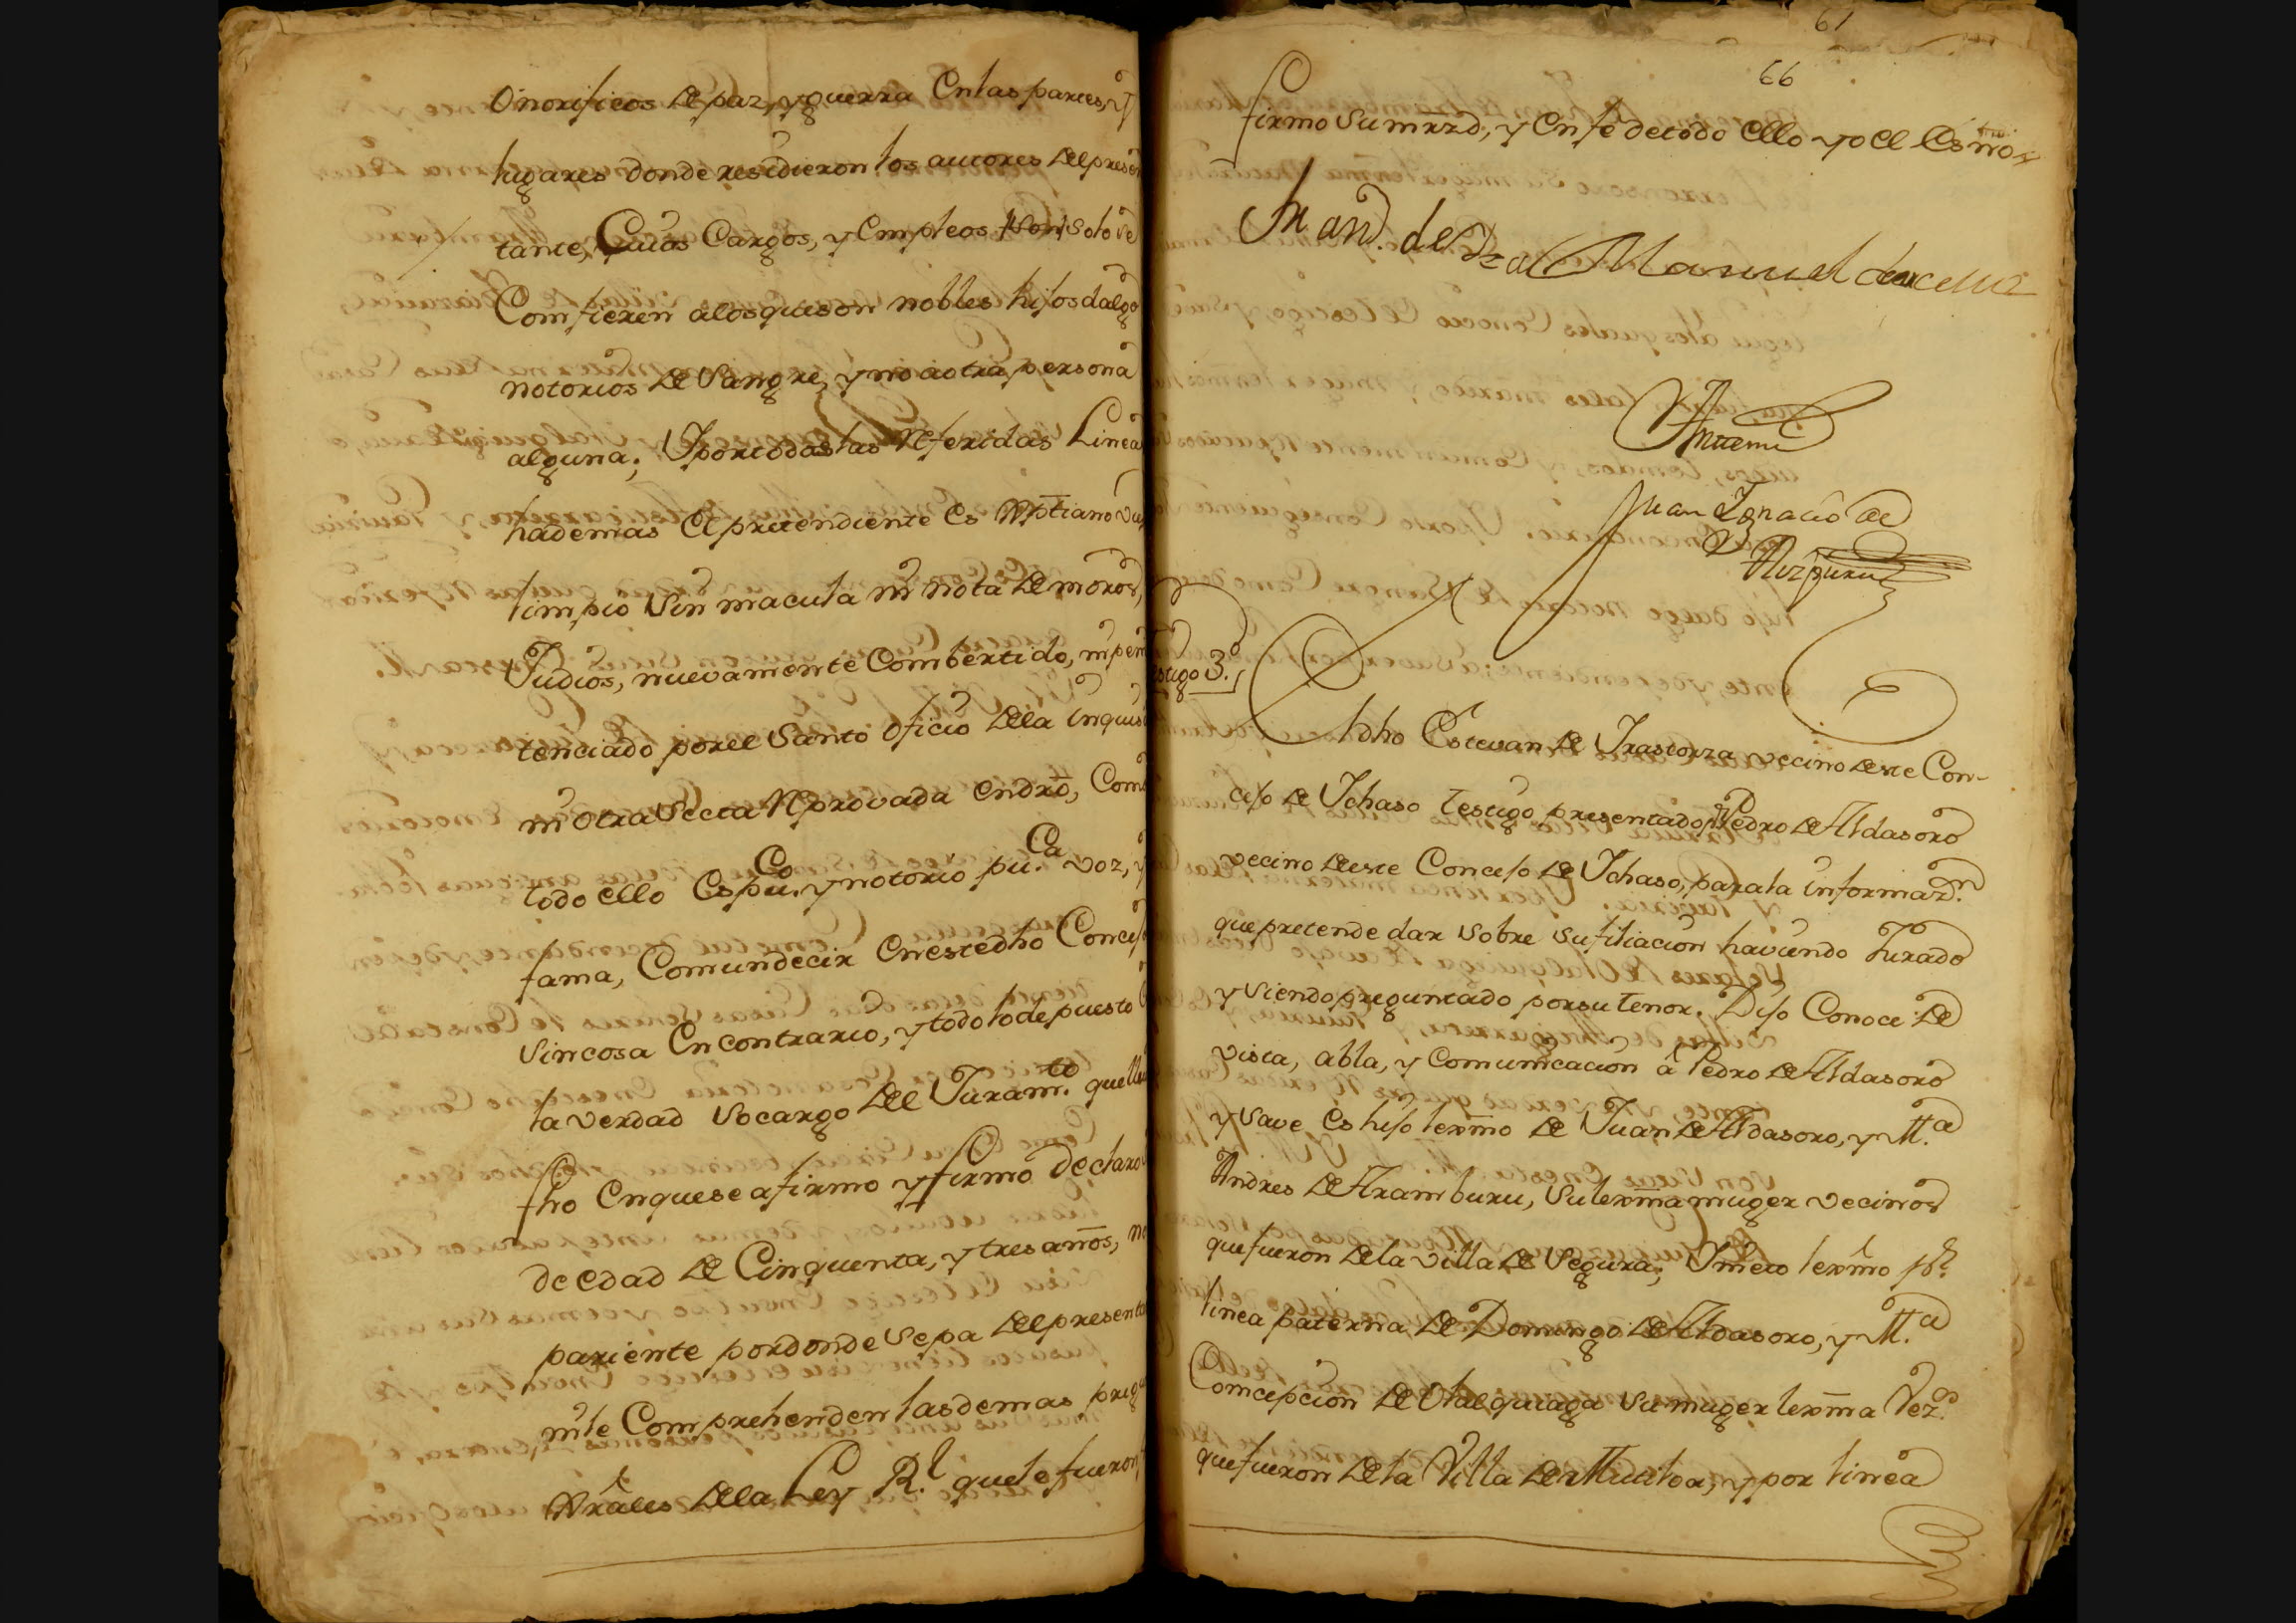 onorificos de paz, y guerra en las partes, y
lugares donde residieron los autores del presen
tante, Cuios Cargos, y Empleos son solo se
Comfieren a los que son nobles hijos dalgo
notorios de Sangre, y no a otra persona
alguna; Y por todas las Referidas Linea
hademas el pretendiente es Xptiano vie
limpio sin macula ni nota de moros,
Judios, nuevamente Combertido, ni peni
tenciado por el Santo oficio de la inquisi
ni otra Secta Reprovada en dro, Como
todo ello es pu.co y notorio pu.ca voz, y
fama, Comun decir en este dho Concejo
Sin cosa en contrario, y todo lo depuesto
la verdad so cargo del Juram.to que lleva
fho en que se afirmo y firmo declaro
de edad de Cinquenta, y tres años, no
pariente por donde sepa del presenta
ni le Comprehenden las demas preg
Xrales de la Ley R.l que le fueron
61
66
firmo su mrzd, y en fe de todo ello yo el Esno
Manuel de
Antemi
Juan Ignacio de
Aizpuru
testigo 3.o
El dho Estevan de Irastorza vecino de este Con-
cejo de Ichaso testigo presentado p.r Pedro de Aldasoro
vecino de este Concejo de Ichaso, para la informaz.n
que pretende dar sobre su filiacion haviendo Jurado
y siendo preguntado por su tenor. Dijo Conoce de
vista, abla, y comunicacion â Pedro de Aldasoro
y save es hijo lexmo de Juan de Aldasoro, y M.a
Andres de Aramburu, su lexma muger vecinos
que fueron de la villa de Segura; Y nieto lexmo p.r
linea paterna de Domingo de Aldasoro, y M.a
Comcepcion de Olalquiaga su muger lexma Vez.os
que fueron de la Villa de Mutiloa, y por linea